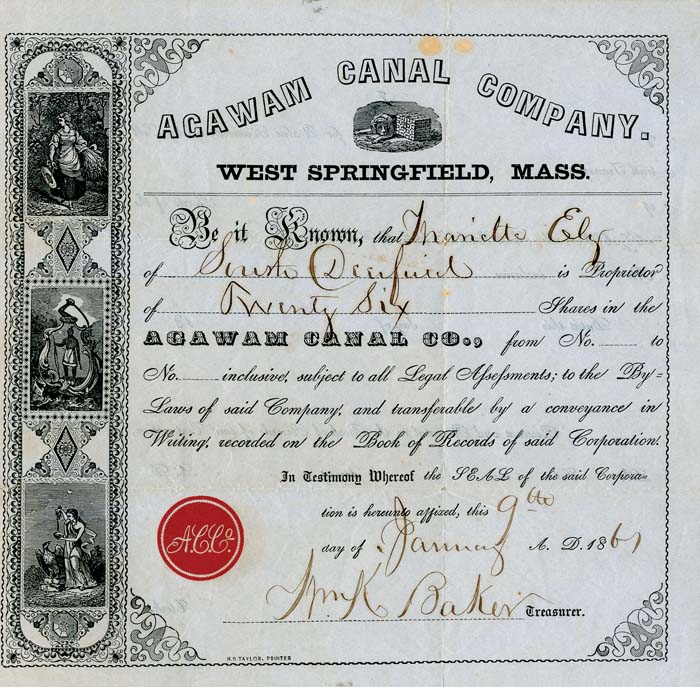 AGAWAM CANAL COMPANY.
WEST SPRINGFIELD, MASS.
Be it Known, that Harriette Ely
of South Deerfield is Proprietor
of Twenty Six Shares in the
AGAWAM CANAL CO., from No. to
No. inclusive, subject to all Legal Assessments; to the By-
Laws of said Company, and transferable by a conveyance in
Writing, recorded on the Book of Records of said Corporation.
In Testimony Whereof the SEAL of the said Corpora-
tion is hereunto affixed, this 9th
day of January A. D. 1861
A.C.Co.
Wm K Baker Treasurer.
H.D. TAYLOR, PRINTER